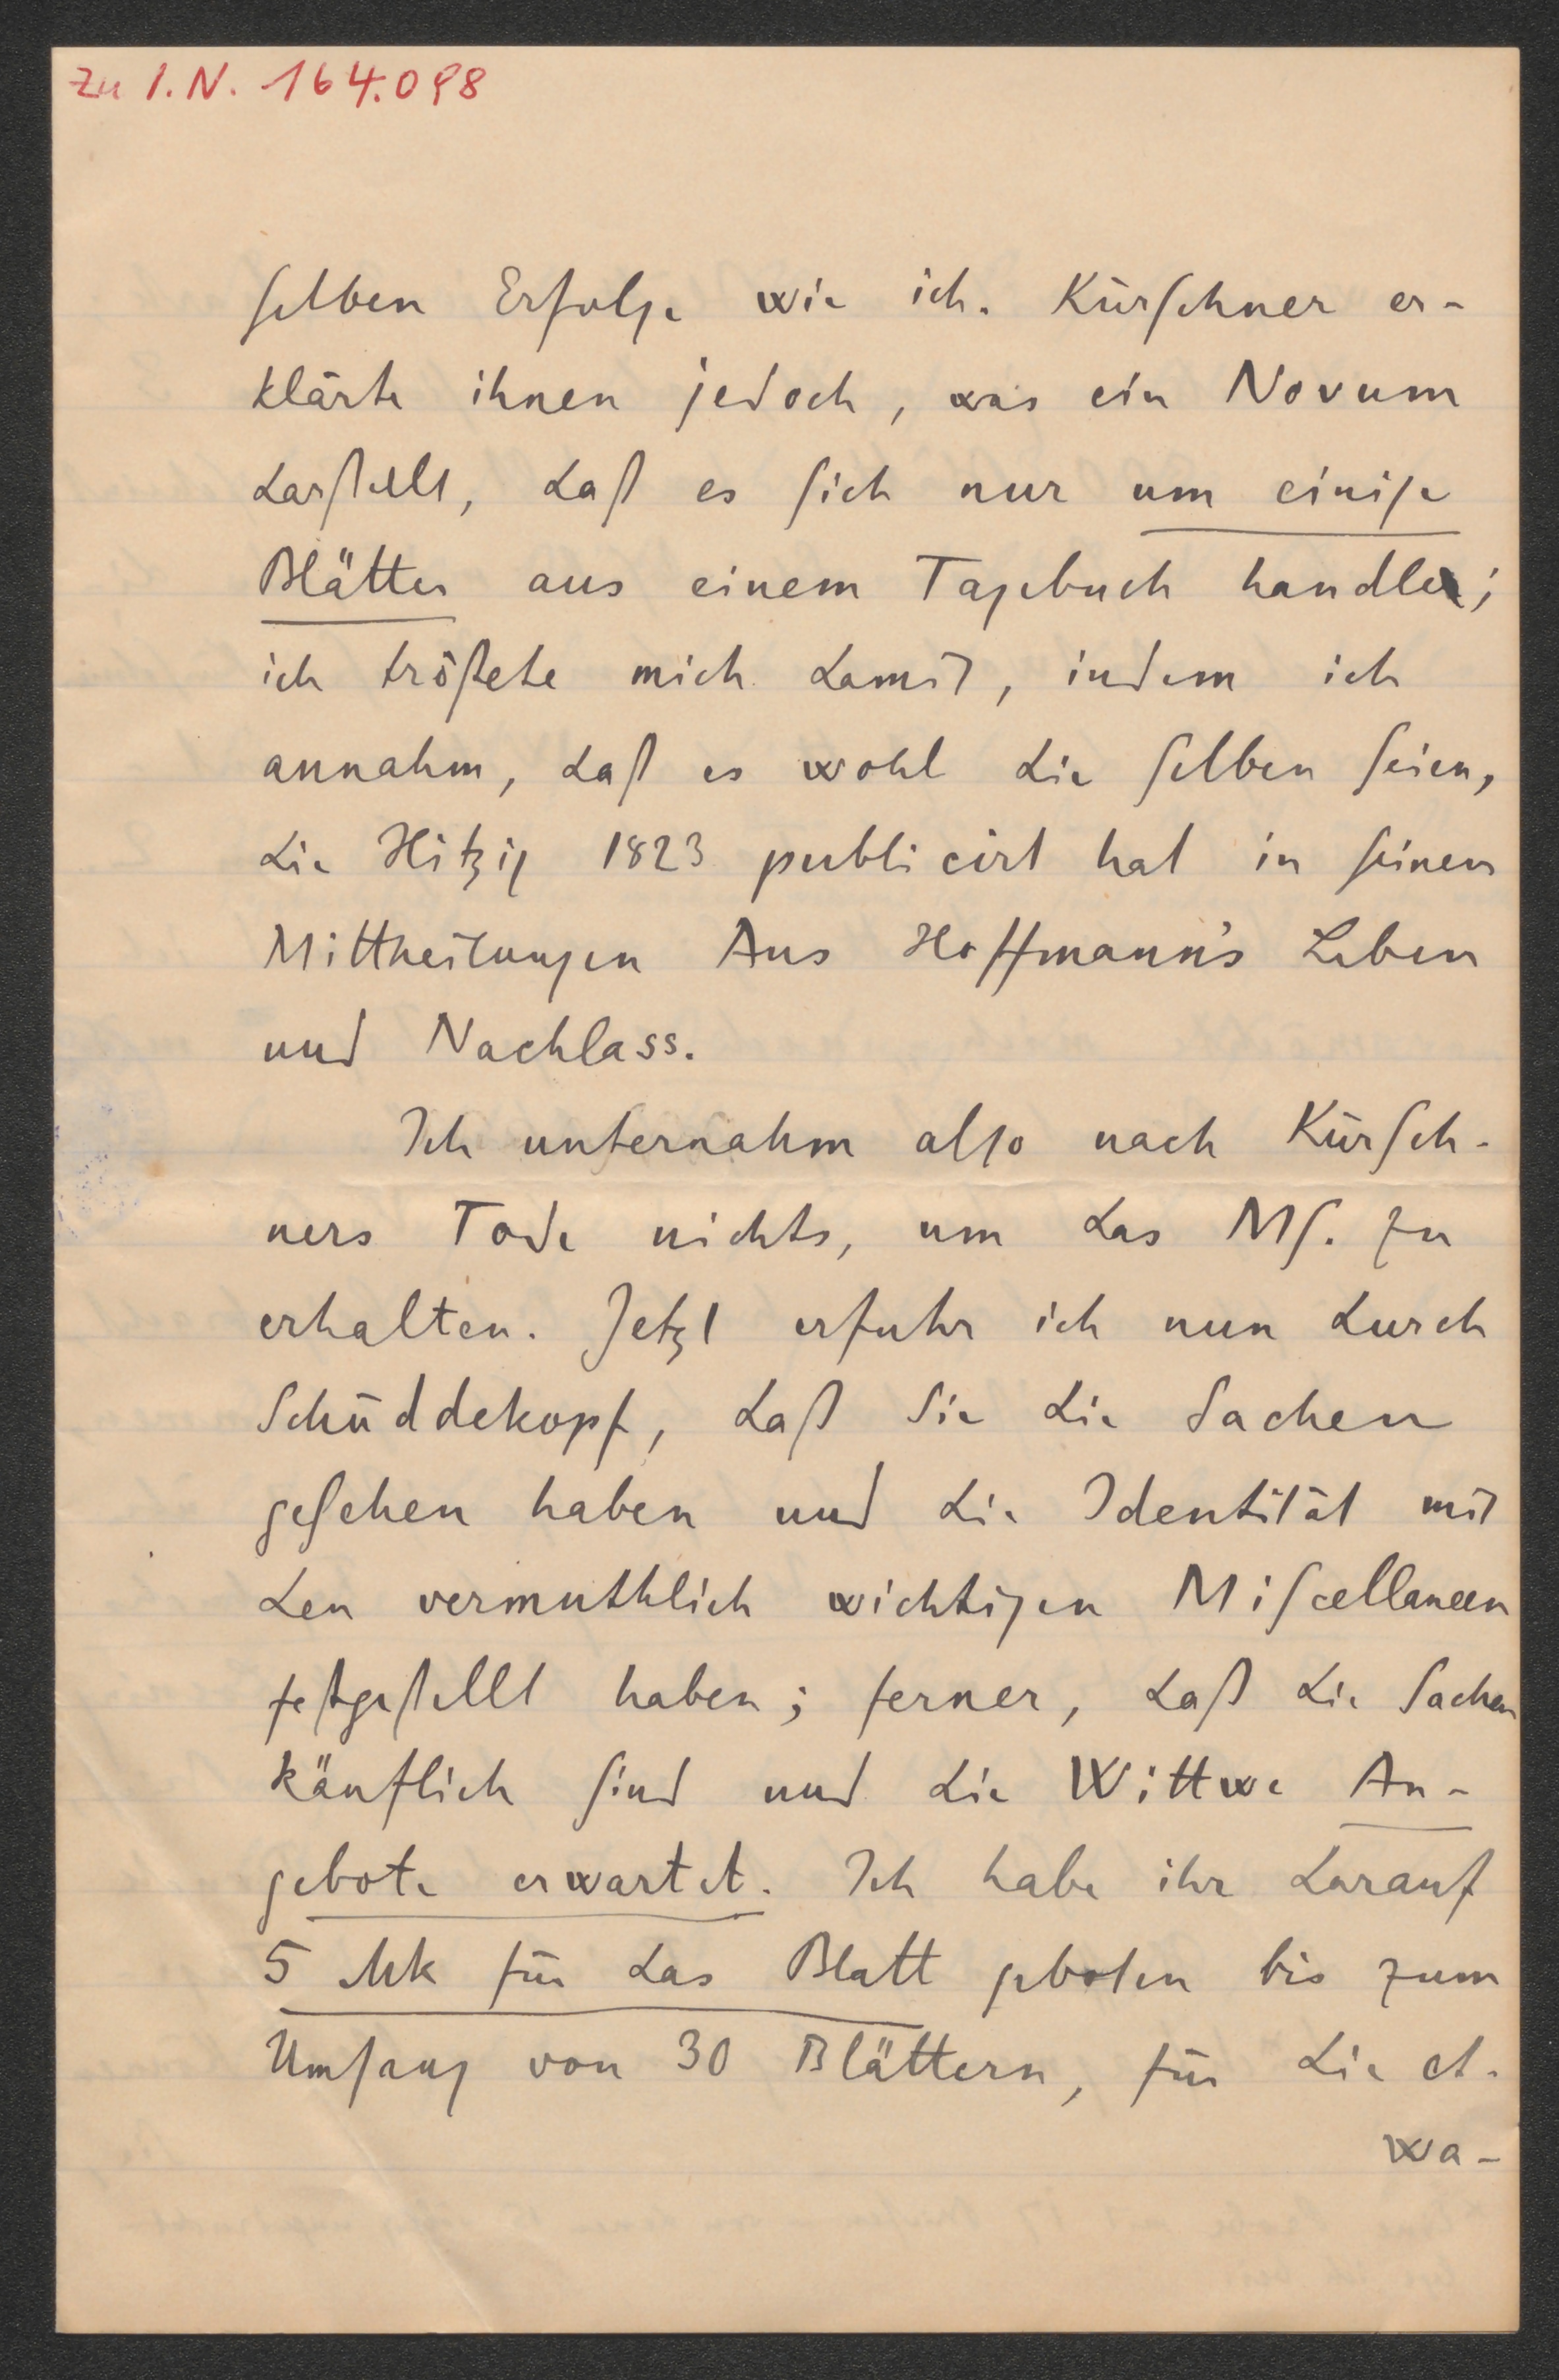 Zu I.N. 164.098
selben Erfolge wie ich. Kürschner er-
klärte ihnen jedoch, was ein Novum
darstellt, daß es sich nur um einige
Blätter aus einem Tagebuch handle;
ich tröstete mich damit, indem ich
annahm, daß es wohl die selben seien,
die Hitzig 1823 publicirt hat in seinen
Mittheilungen Aus Hoffmann's Leben
und Nachlass.
Ich unternahm also nach Kürsch-
ners Tode nichts, um das Ms. zu
erhalten. Jetzt erfuhr ich nun durch
Schüddekopf, daß Sie die Sachen
gesehen haben und die Identität mit
den vermuthlich wichtigen Miscellaneen
festgestellt haben; ferner, daß die Sachen
käuflich sind und die Wittwe An-
gebote erwartet. Ich habe ihr darauf
5 Mk für das Blatt geboten bis zum
Umfang von 30 Blättern, für die et-
wa-